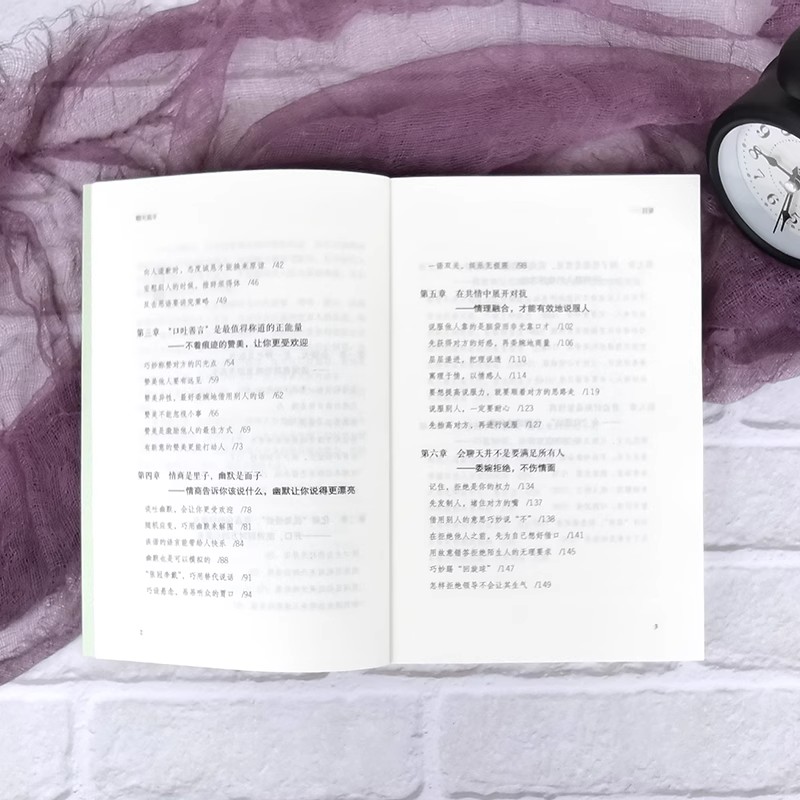 聊天高手
向人道歉时，态度诚恳才能换来原谅 /42
安慰别人的时候，推辞须得体 /46
反击用语要讲究策略 /49
第三章 “口吐善言”是最值得称道的正能量
——不着痕迹的赞美，让你更受欢迎
巧妙称赞对方的闪光点 /54
赞美他人要有远见 /59
赞美异性，最好委婉地借用别人的话 /62
赞美不能忽视小事 /66
赞美是激励他人的最佳方式 /69
有新意的赞美更能打动人 /73
第四章 情商是里子，幽默是面子
——情商告诉你该说什么，幽默让你说得更漂亮
谈吐幽默，会让你更受欢迎 /78
随机应变，巧用幽默来解围 /81
诙谐的语言能带给人快乐 /84
幽默也是可以模拟的 /88
“张冠李戴”，巧用替代说话 /91
巧设悬念，吊吊听众的胃口 /94
2
目录
一语双关，娱乐无极限 /98
第五章 在共情中展开对抗
——情理融合，才能有效地说服人
说服他人靠的是脑袋而非光靠口才 /102
先获得对方的好感，再委婉地商量 /106
层层递进，把理说透 /110
寓理于情，以情感人 /114
要想提高说服力，就要顺着对方的思路走 /119
说服别人，一定要耐心 /123
先抬高对方，再进行说服 /127
第六章 会聊天并不是要满足所有人
——委婉拒绝，不伤情面
记住，拒绝是你的权力 /134
先发制人，堵住对方的嘴 /137
借用别人的意思巧妙说“不” /138
在拒绝他人之前，先为自己想好借口 /141
用故意错答拒绝陌生人的无理要求 /145
巧妙踢“回旋球” /147
怎样拒绝领导不会让其生气 /149
3